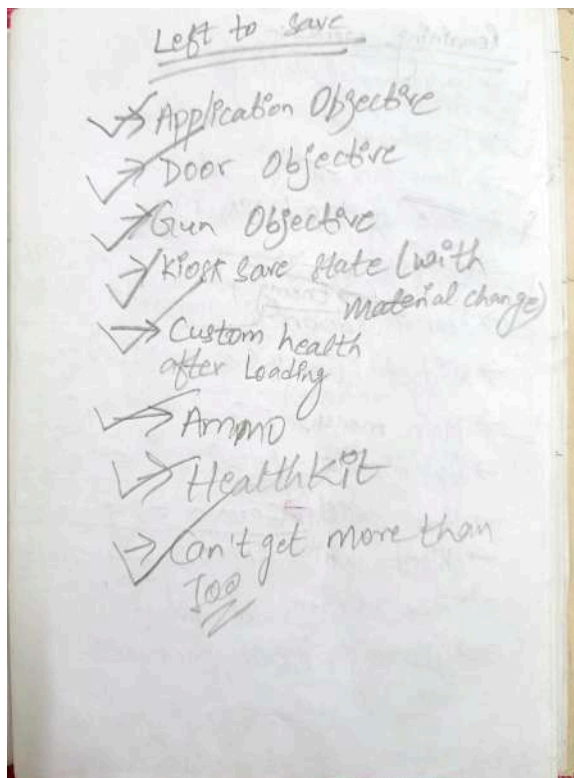 Left to save
→ Application Objective
→ Door Objective
→ Gun Objective
→ Kiosk save state (with
material change)
→ Custom health
after Loading
→ Ammo
→ HealthKit
→ Can't get more than
100